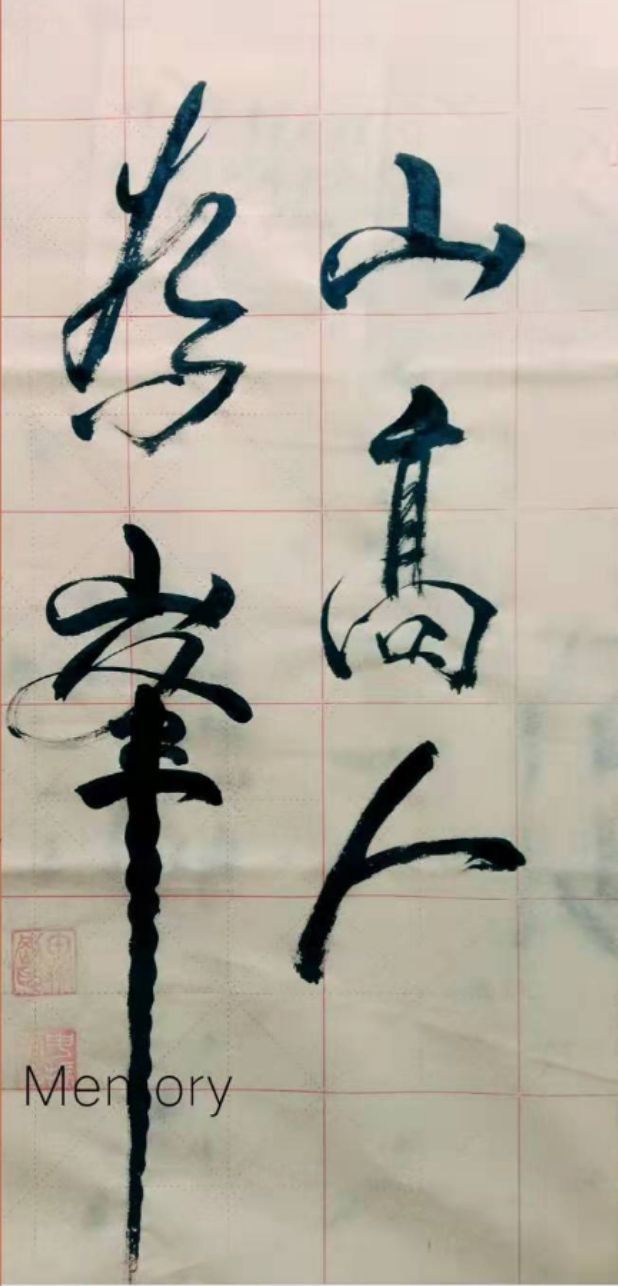 山高人
为峯
Memory